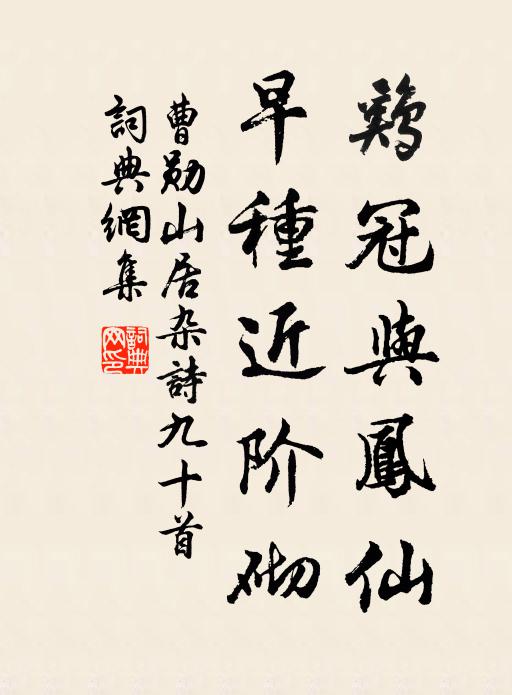 鷄冠與鳳仙
早種近阶砌
曹勋山居杂詩九十首
詞典網集
詞典
网印